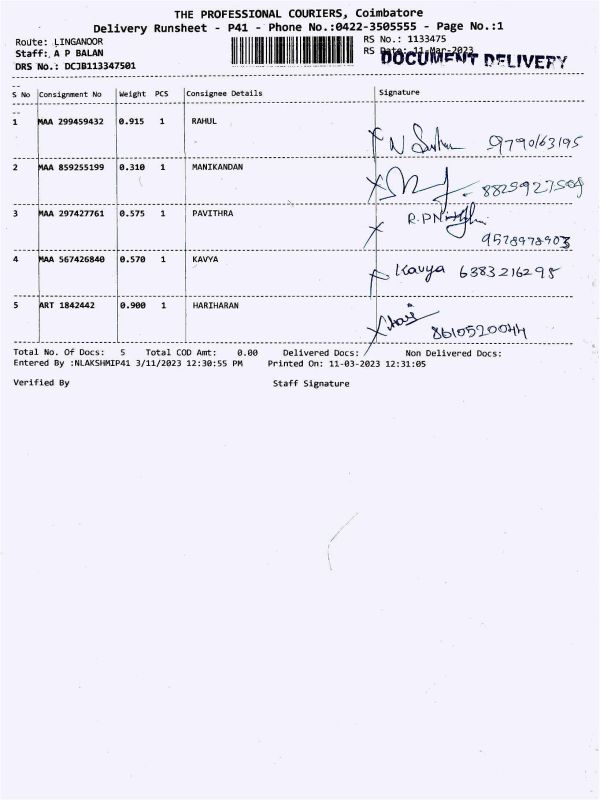 THE PROFESSIONAL COURIERS, Coimbatore
Delivery Runsheet - P41 - Phone No.:0422-3505555 - Page No.:1
Route: LINGANOOR
Staff: A P BALAN
DRS No.: DCJB113347501
RS No.: 1133475
RS Date: 11-Mar-2023
DOCUMENT DELIVERY
S No Consignment No Weight PCS Consignee Details Signature
1 MAA 299459432 0.915 1 RAHUL
9790163195
2 MAA 859255199 0.310 1 MANIKANDAN
8825927504
3 MAA 297427761 0.575 1 PAVITHRA
R.P
9578978903
4 MAA 567426840 0.570 1 KAVYA
Kavya 6383216298
5 ART 1842442 0.900 1 HARIHARAN
Hari
8610520044
Total No. Of Docs: 5 Total COD Amt: 0.00 Delivered Docs: Non Delivered Docs:
Entered By :NLAKSHMIP41 3/11/2023 12:30:55 PM Printed On: 11-03-2023 12:31:05
Verified By Staff Signature